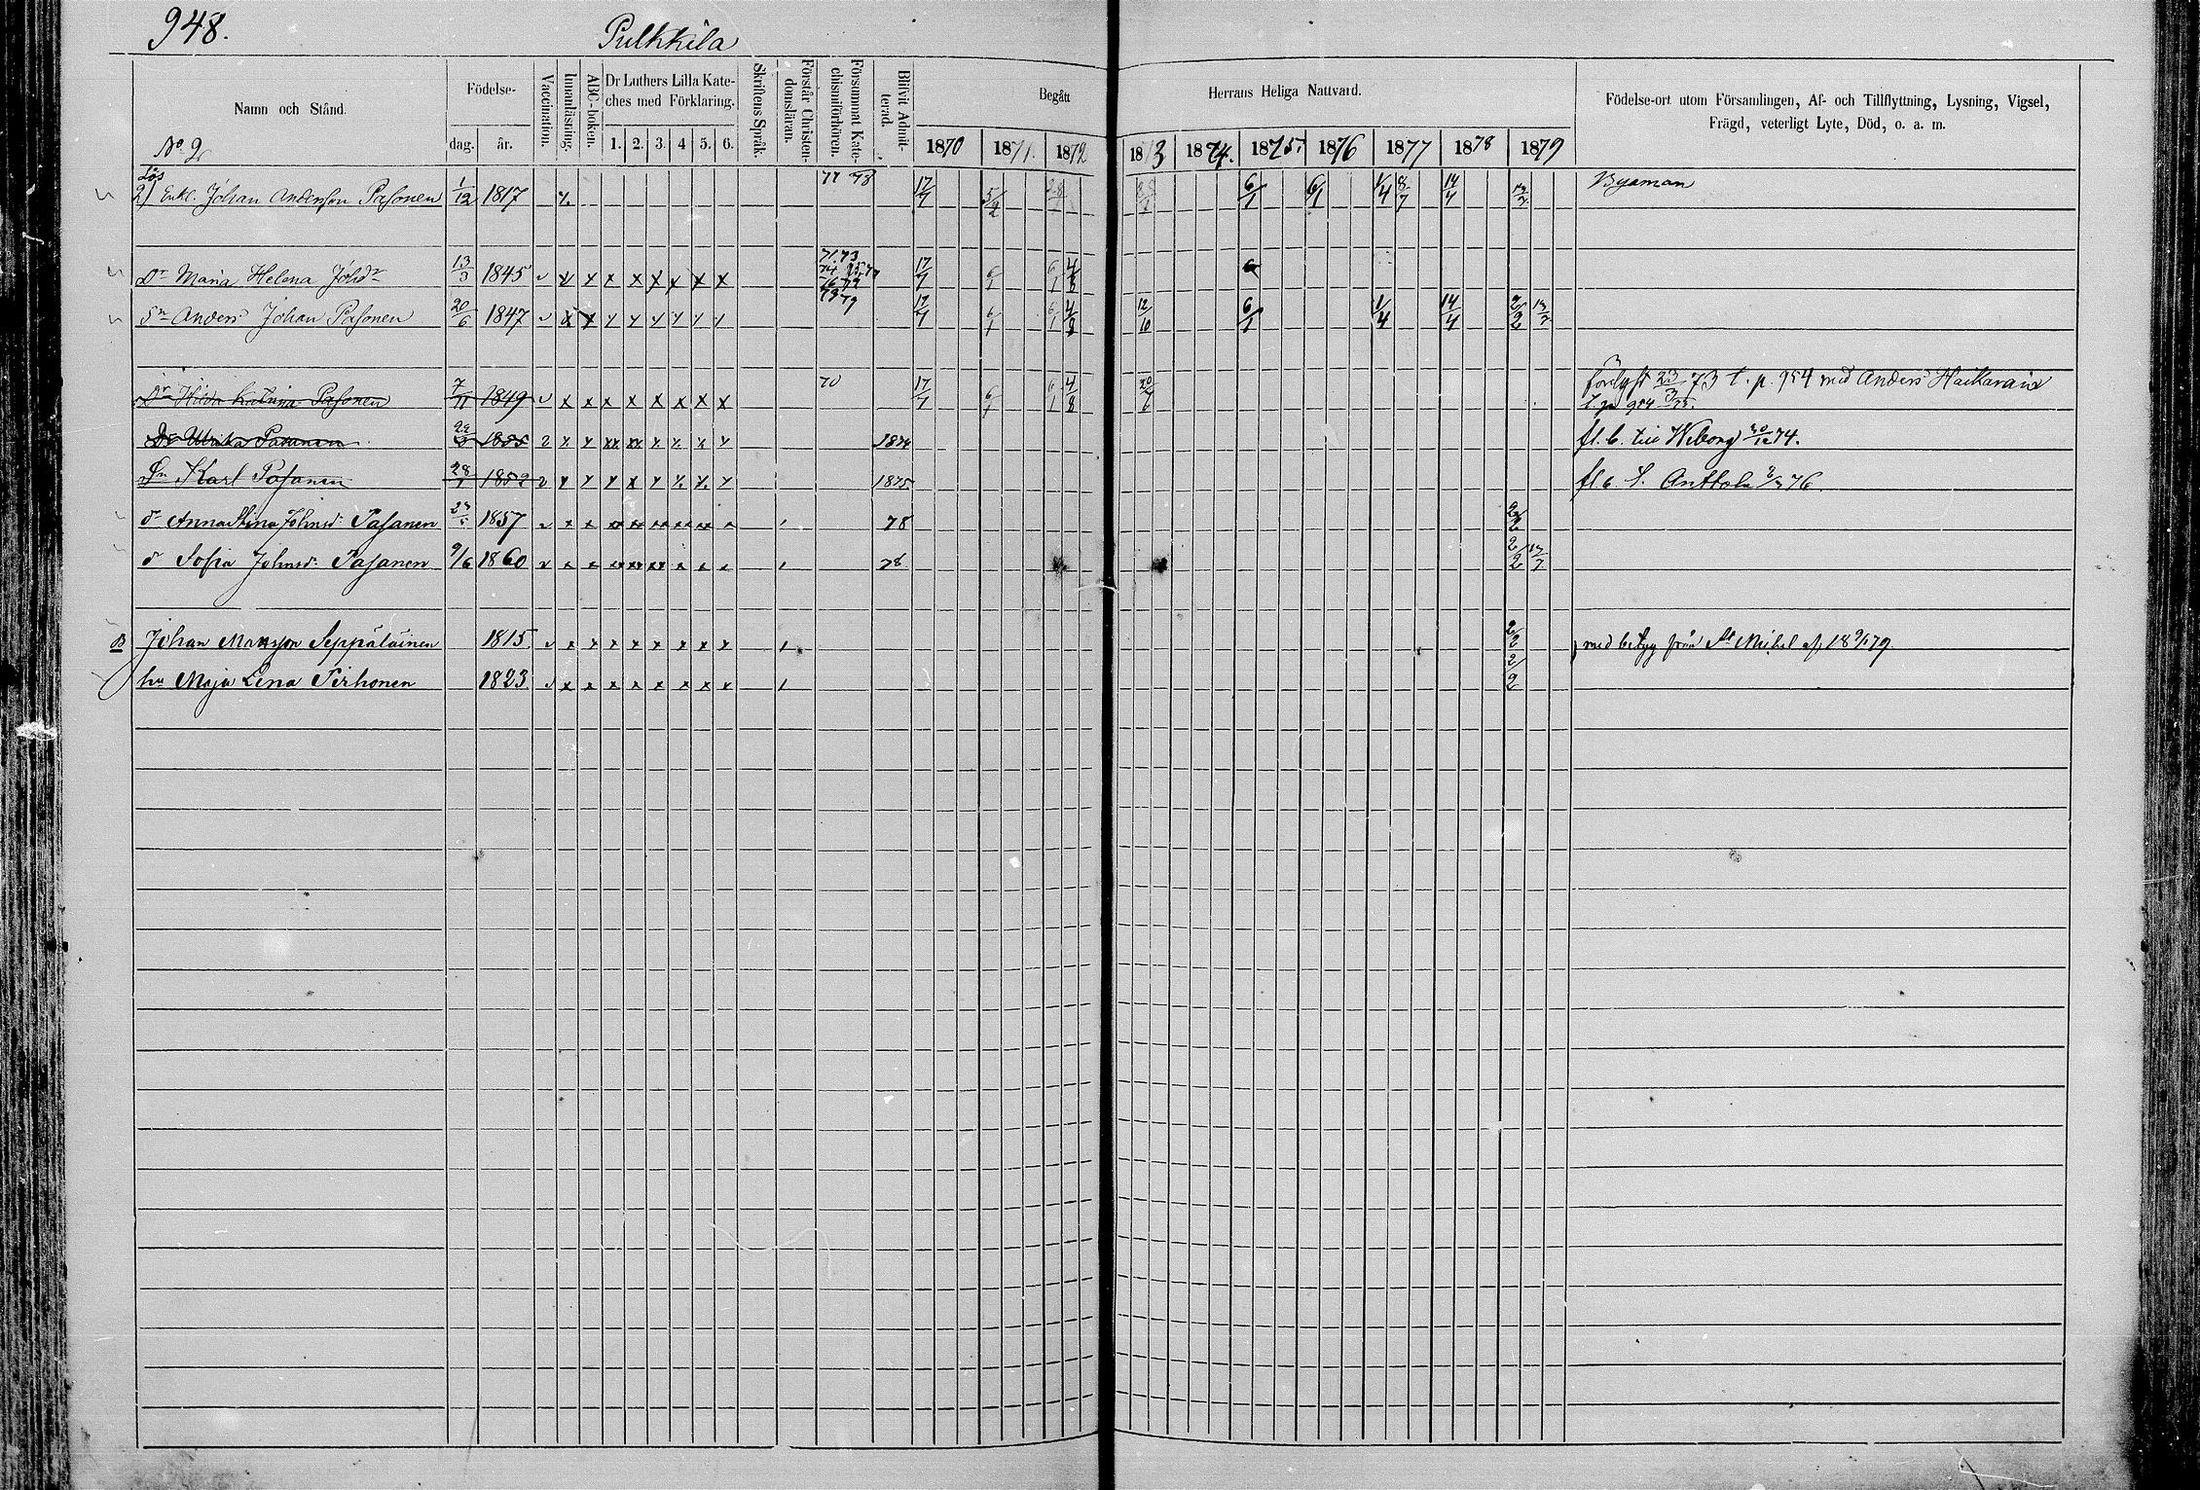 948.
Pulkkila
Namn och Stånd.
Födelse-
dag. år.
Vaccination.
Innanläsning.
ABC-boken.
Dr Luthers Lilla Kate-
ches med Förklaring.
1. 2. 3. 4 5. 6.
Skriftens Språk.
Förstår Christen-
domsläran.
Försummat Kate-
chismiförhören.
Blifvit Admit-
terad.
Begått Herrans Heliga Nattvard.
1870 1871. 1872 1873 1874. 1875. 1876 1877 1878 1879
Födelse-ort utom Församlingen, Af- och Tillflyttning, Lysning, Vigsel,
Frägd, veterligt Lyte, Död, o. a. m.
No 2
Lös
2) Enkl. Johan Andersson Pasonen 1/12 1817 77 78 17/7 5/2 6/1 6/1 1/4 8/7 14/4 Byaman
Dr Maria Helena Johdr 13/3 1845 v x x x x x x x x 71.73 17/7 6/1 6/1 4/8 6
Sn Anders Johan Pasonen 20/6 1847 v x x x x x x x x 17/7 6/1 6/1 4/8 12/10 6/1 1/4 14/4 2/2 13/7
Dr Hilda Katrina Pasonen 7/11 1849 v x x x x x x x x 70 17/7 6/1 6/1 4/8 förlyst 23/3 73 t. p. 954 med Anders
t. p. 954
Dr Ulrika Pasanen 1855 1874 fl. b. till Wiborg 30/12 74.
Sn Karl Pasanen 28/1 1852 1875 fl. b. t. Anttola 76.
dr Anna Stina Johnsd: Pasanen 1857 78 2/2
dr Sofia Johnsd: Pasanen 9/6 1860 78 2/2 13/7
B Johan Mansson Seppäläinen 1815 v x x x x x x x x 2/2 med betyg från St Michel af 18 9/1 79.
hu Maja Lena Pirhonen 1823 v x x x x x x x x 2/2